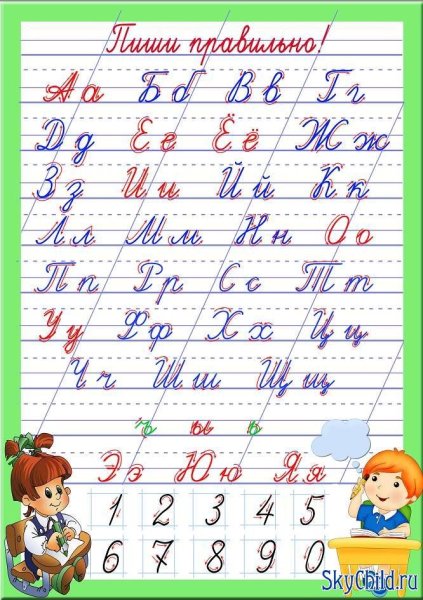 Пиши правильно!
Аа Бб Вв Гг
Дд Ее Ёё Жж
Зз Ии Йй Кк
Лл Мм Нн Оо
Пп Рр Сс Тт
Уу Фф Хх Цц
Чч Шш Щщ
ъ ы ь
Ээ Юю Яя
1 2 3 4 5
6 7 8 9 0
SkyChild.ru